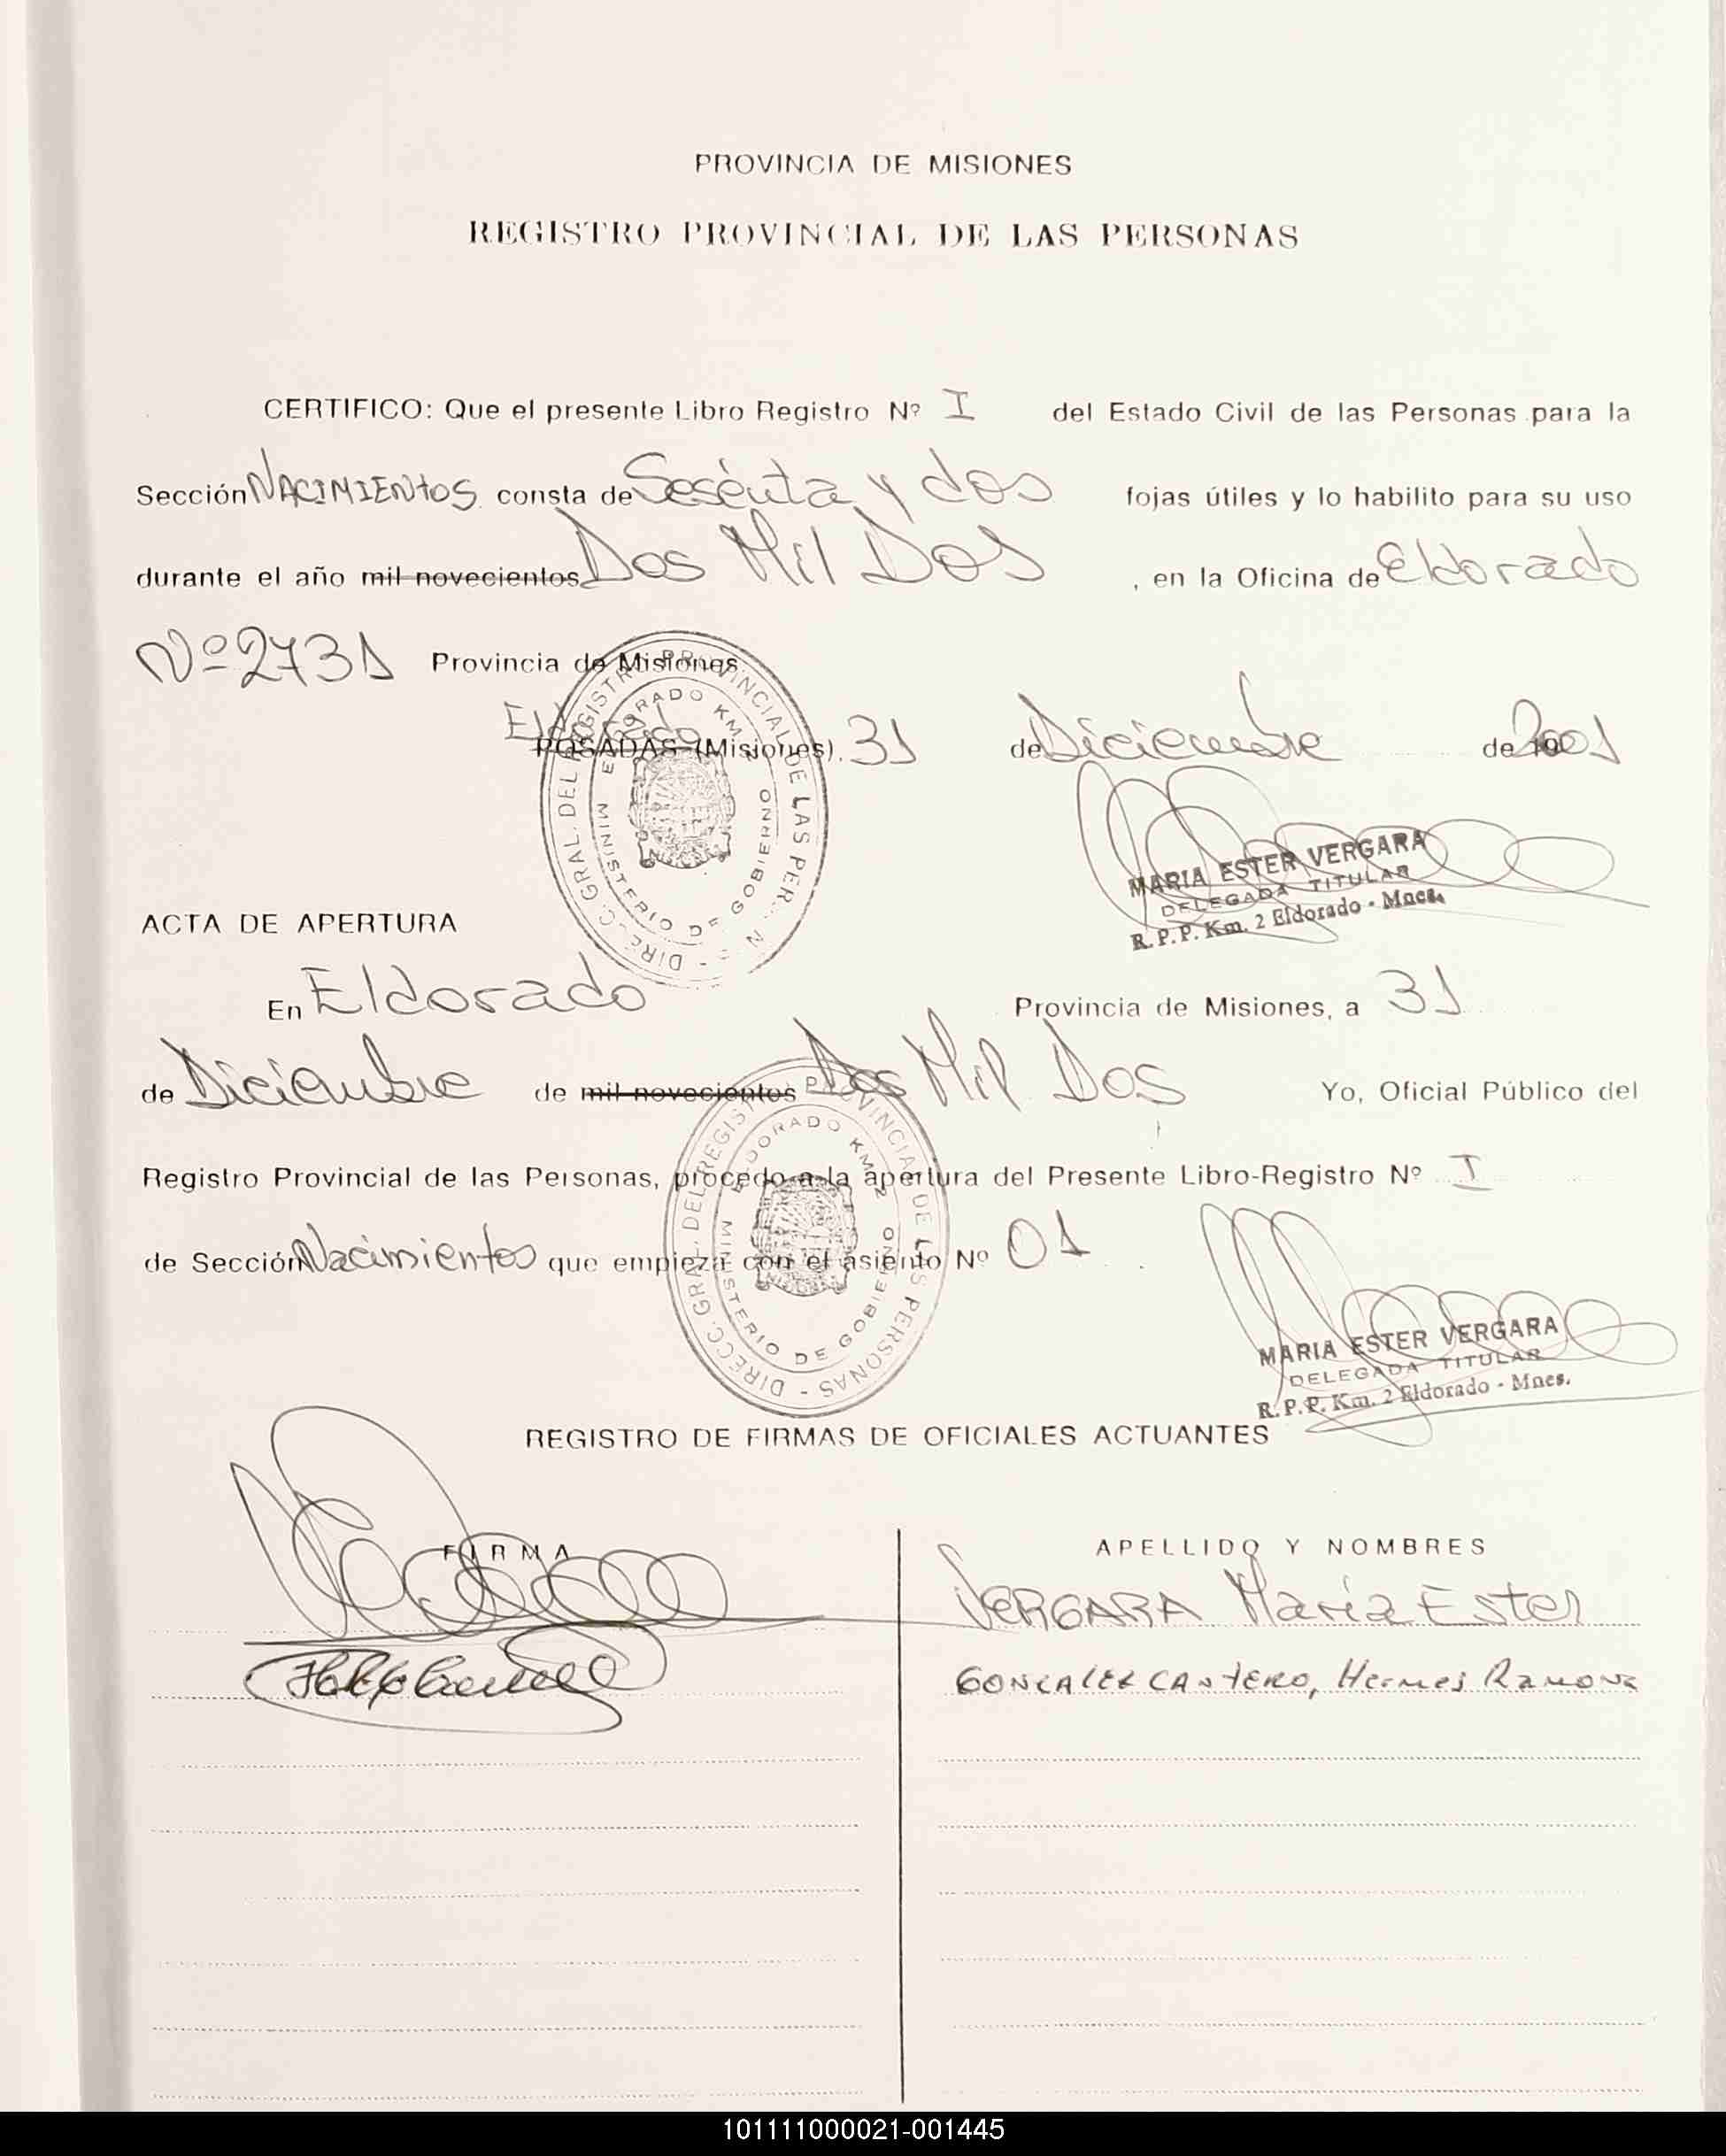 PROVINCIA DE MISIONES
REGISTRO PROVINCIAL DE LAS PERSONAS
CERTIFICO: Que el presente Libro Registro Nº I del Estado Civil de las Personas para la
Sección NACIMIENtoS consta de Sesenta y dos fojas útiles y lo habilito para su uso
durante el año mil novecientos Dos Mil Dos, en la Oficina de Eldorado
Nº 2731 Provincia de Misiones
Eldorado
POSADAS (Misiones), 31 de Diciembre de 2001
DIREC. GRAL. DEL REGISTRO PROVINCIAL DE LAS PER
ELDORADO KM. 2
MINISTERIO DE GOBIERNO
MARIA ESTER VERGARA
DELEGADA TITULAR
R.P.P. Km. 2 Eldorado - Mnes.
ACTA DE APERTURA
En Eldorado Provincia de Misiones, a 31
de Diciembre de mil novecientos Dos Mil Dos Yo, Oficial Público del
Registro Provincial de las Personas, procedo a la apertura del Presente Libro-Registro Nº I
de Sección Nacimientos que empieza con el asiento Nº 01
DIRECC. GRAL. DEL REGISTRO PROVINCIAL DE LAS PERSONAS -
ELDORADO KM. 2
MINISTERIO DE GOBIERNO
MARIA ESTER VERGARA
DELEGADA TITULAR
R.P.P. Km. 2 Eldorado - Mnes.
REGISTRO DE FIRMAS DE OFICIALES ACTUANTES
FIRMA APELLIDO Y NOMBRES
VERGARA María Ester
GONZALEZ CANTERO, Hermes Ramona
101111000021-001445